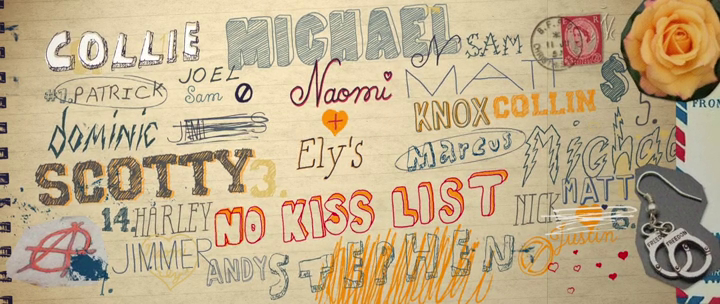 COLLIE MICHAEL N SAM
#1. PATRICK JOEL Sam Naomi MATT S
dominic KNOX COLLIN 5.
+ Ely's Marcus Michael
SCOTTY 3.
14. HARLEY NO KISS LIST NICK MATT
5.
JIMMER ANDY STEPHEN Justin
FREEDOM